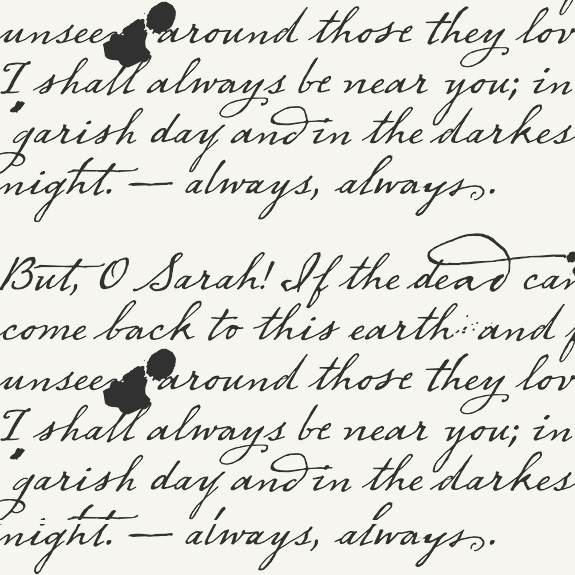 unseen around those they lov
I shall always be near you; in
garish day and in the darkes
night. — always, always.
But, O Sarah! If the dead can
come back to this earth and f
unseen around those they lov
I shall always be near you; in
garish day and in the darkes
night. — always, always.